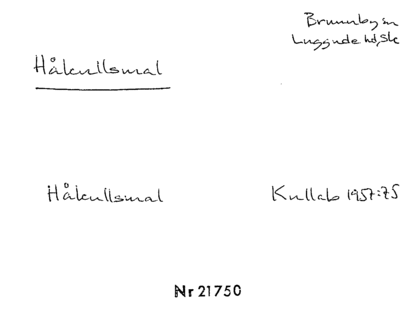 Brunnby sn
Luggude hd, Sk
Håkullsmal
Håkullsmal Kullab 1957:75
Nr 21750